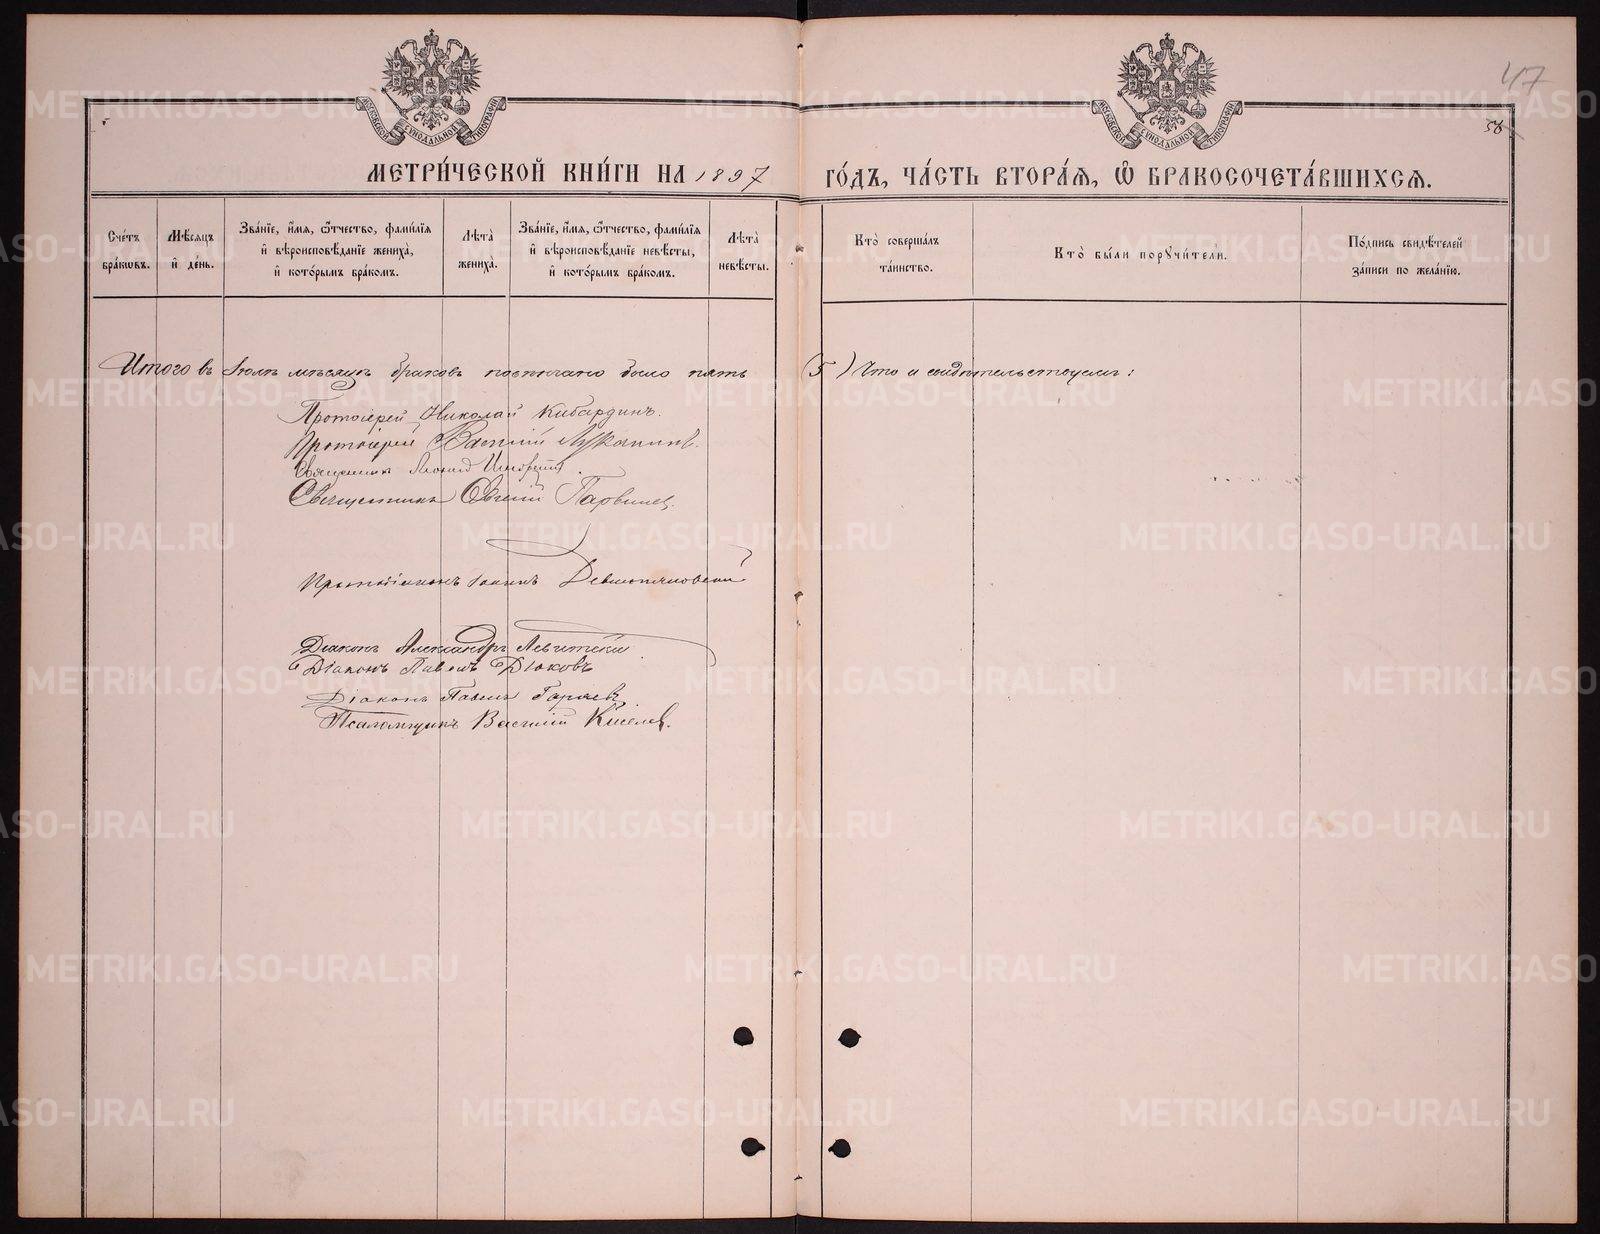 47
58
МОСКОВСКОЙ СѴНОДАЛЬНОЙ ТИПОГРАФІИ
МОСКОВСКОЙ СѴНОДАЛЬНОЙ ТИПОГРАФІИ
МЕТРИ́ЧЕСКОЙ КНИ́ГИ НА 1897 ГО́ДЪ, ЧА́СТЬ ВТОРА́Я, Ѽ БРАКОСОЧЕТА́ВШИХСЯ.
Сче́тъ бра́кѡвъ.
Мѣ́сяцъ и҆ де́нь.
Зва́нїе, и҆́мя, ѻ҆́тчество, фами́лїя и҆ вѣроисповѣ́данїе жениха̀, и҆ кото́рымъ бра́комъ.
Лѣта̀ жениха̀.
Зва́нїе, и҆́мя, ѻ҆́тчество, фами́лїя и҆ вѣроисповѣ́данїе невѣ́сты, и҆ кото́рымъ бра́комъ.
Лѣта̀ невѣ́сты.
Кто̀ соверша́лъ та́инство.
Кто̀ бы́ли порꙋчи́тели.
По́дпись свидѣ́телей за́писи по жела́нїю.
Итого въ Іюлѣ мѣсяцѣ браковъ повѣнчано было пять (5) Что и свидѣтельствуемъ:
Протоіерей Николай Кибардинъ.
Протоіерей Василій Луканинъ.
Священникъ Леонид Игноратовъ
Священникъ Евгеній
Протодіаконъ Іоаннъ
Діаконъ Александръ Левитскій
Діаконъ Павелъ Дюковъ
Діаконъ Павелъ Гаряевъ
Псаломщикъ Василій Киселевъ.
METRIKI.GASO-URAL.RU